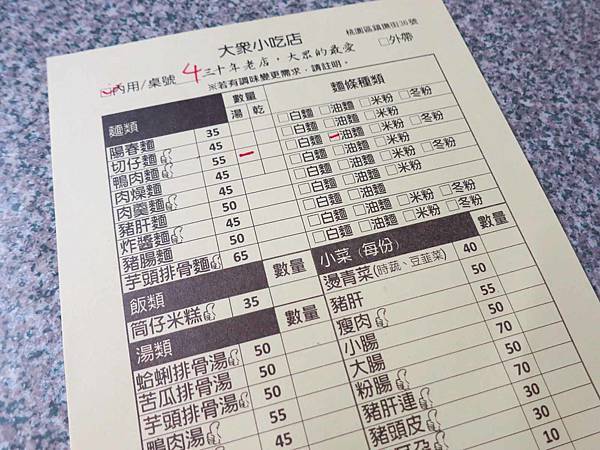 大眾小吃店
桃園區鎮撫街36號
三十年老店，大眾的最愛
內用/桌號 4 □外帶
※若有調味變更需求，請註明。
麵類 數量 湯 乾 麵條種類
陽春麵 35 □白麵 □油麵 □米粉 □冬粉
切仔麵 45 □白麵 □油麵 □米粉 □冬粉
鴨肉麵 55 □白麵 □油麵 □米粉 □冬粉
肉燥麵 45 □白麵 □油麵 □米粉 □冬粉
肉羹麵 50 □白麵 □油麵 □米粉 □冬粉
豬肝麵 45 □白麵 □油麵 □米粉 □冬粉
炸醬麵 45 □白麵 □油麵 □米粉 □冬粉
豬腸麵 50 □白麵 □油麵 □米粉 □冬粉
芋頭排骨麵 65 □白麵 □油麵 □米粉 □冬粉
飯類 數量
筒仔米糕 35
湯類 數量
蛤蜊排骨湯 50
苦瓜排骨湯 50
芋頭排骨湯 55
鴨肉湯 45
小菜（每份） 數量
燙青菜(時蔬、豆韭菜) 40
豬肝 50
瘦肉 55
小腸 50
大腸 70
粉腸 50
豬肝連 70
豬頭皮 30
30
10